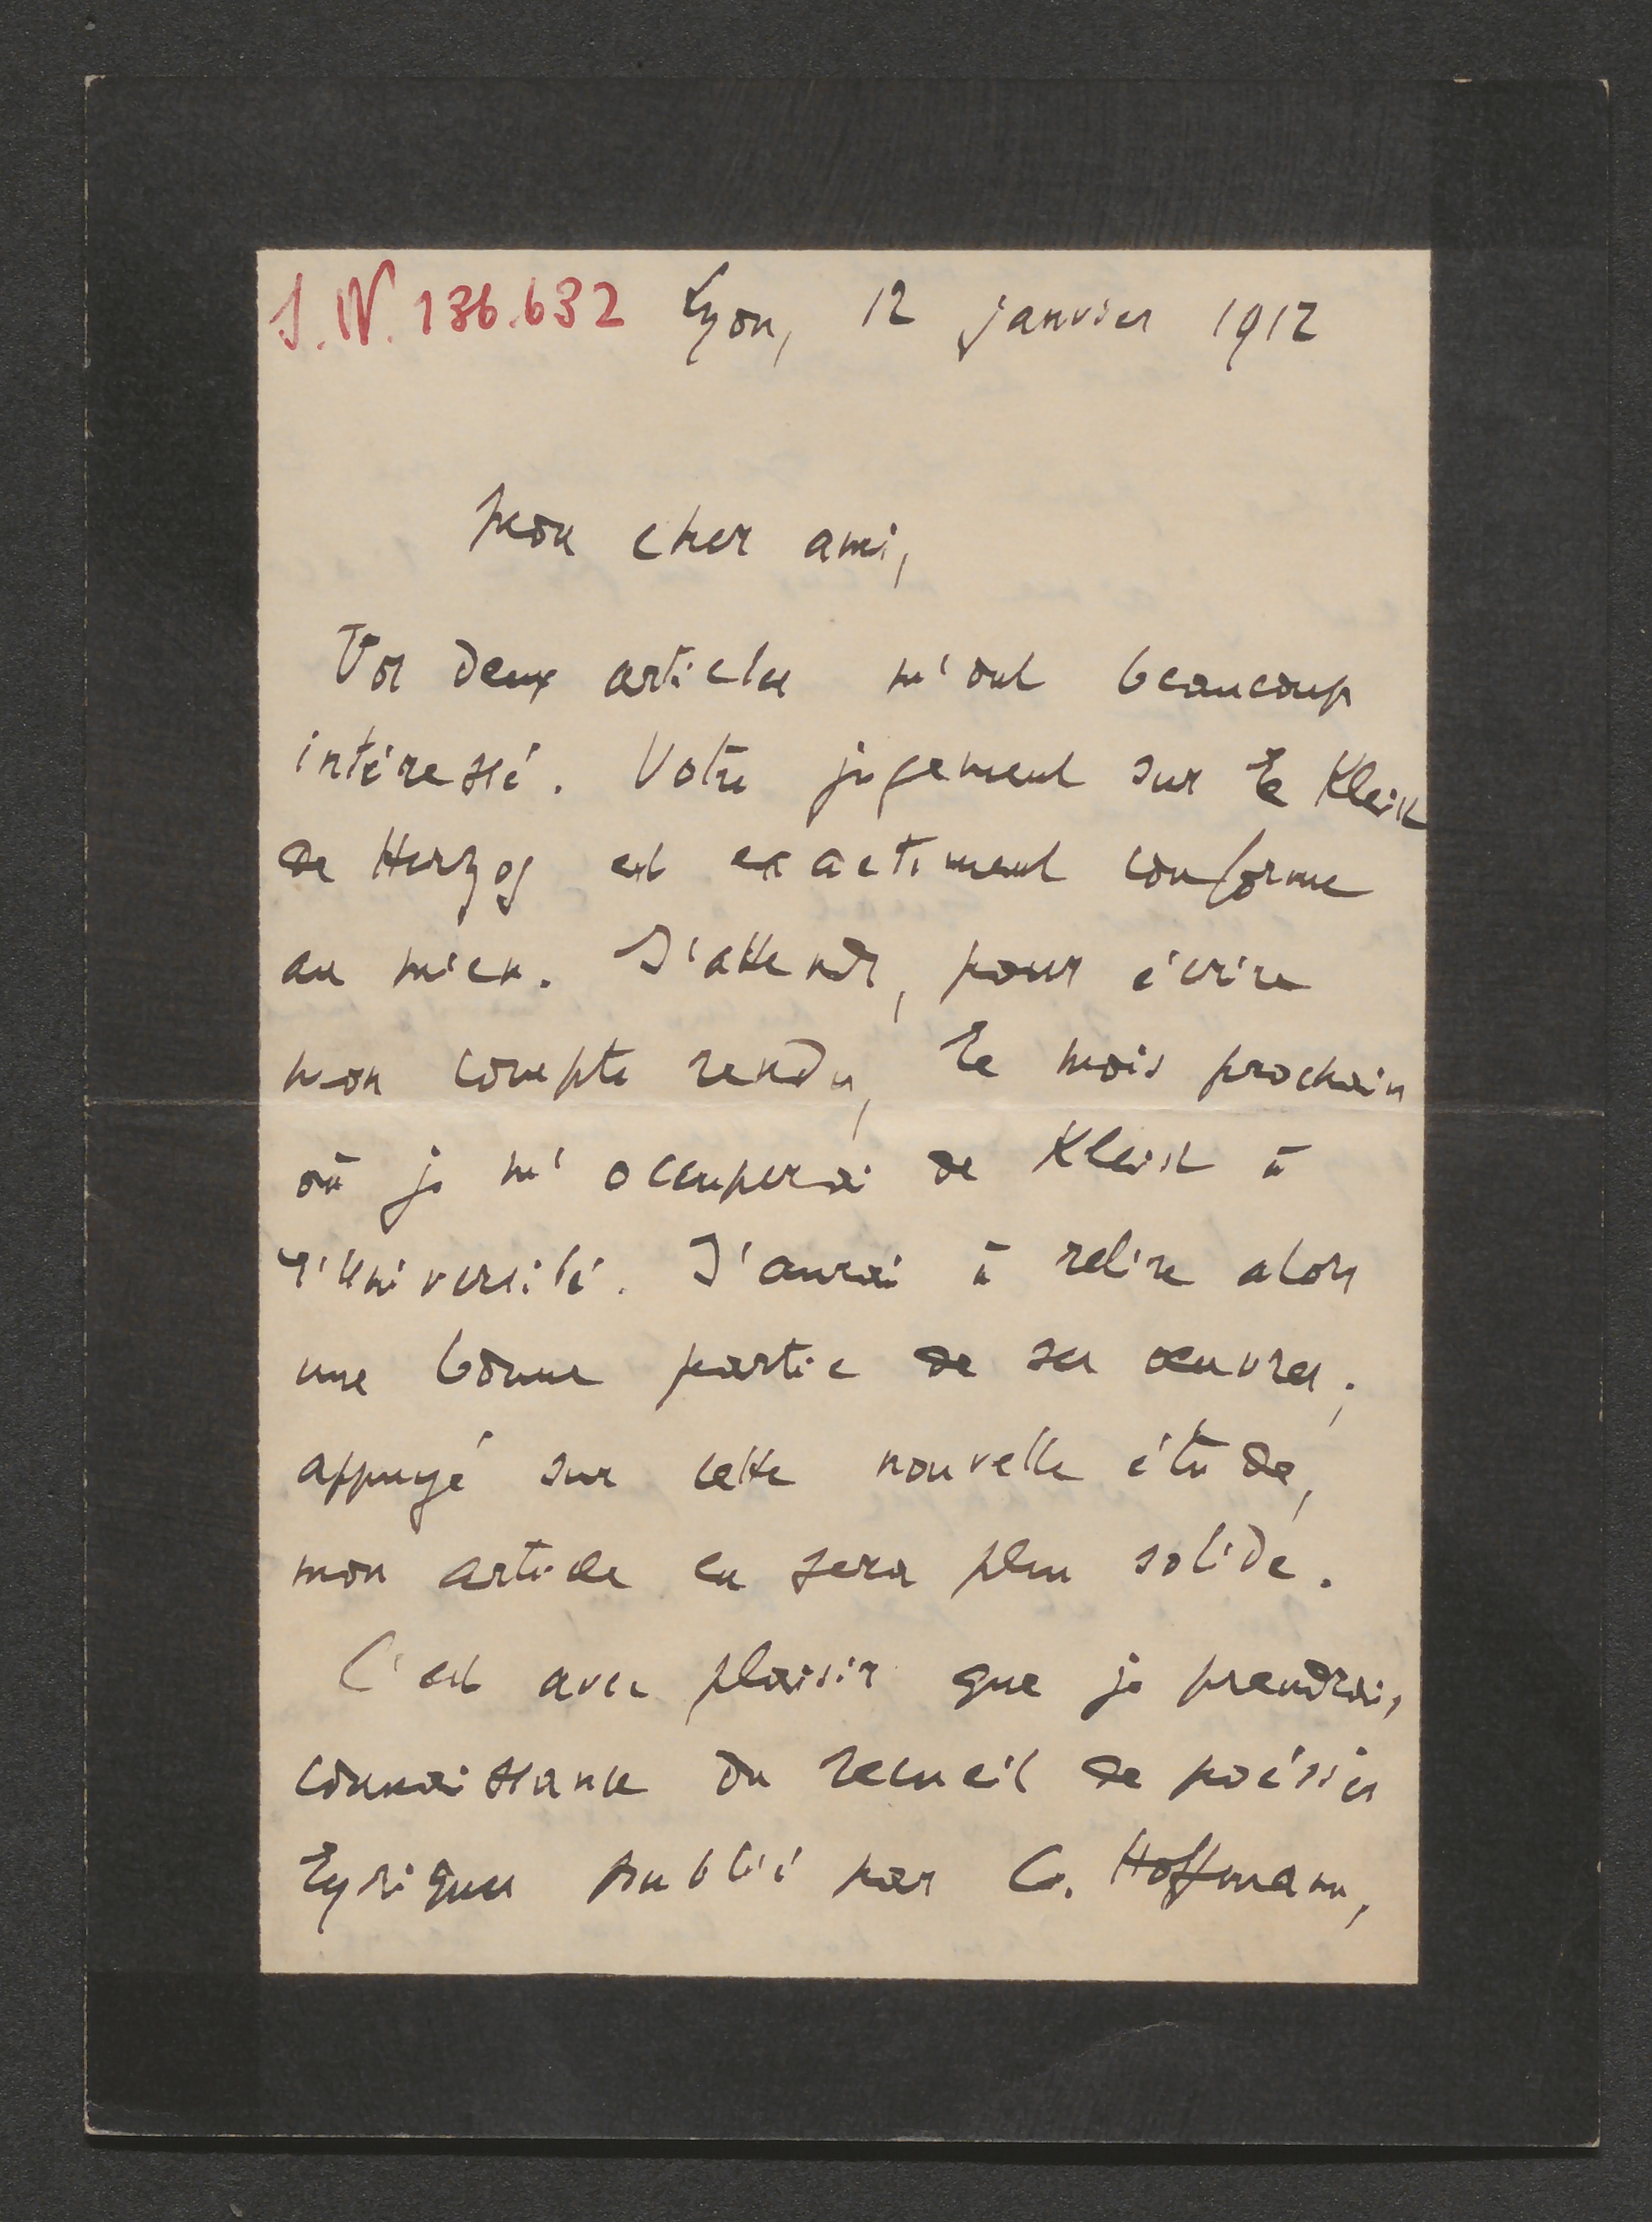 J.N. 136.632 Lyon, 12 janvier 1912
Mon cher ami,
Vos deux articles m'ont beaucoup
intéressé. Votre jugement sur le Kleist
de Herzog est exactement conforme
au mien. J'attends, pour écrire
mon compte rendu, le mois prochain
où je m'occuperai de Kleist à
l'Université. J'aurai à relire alors
une bonne partie de ses œuvres;
appuyé sur cette nouvelle étude,
mon article en sera plus solide.
C'est avec plaisir que je prendrais
connaissance du recueil de poésies
lyriques publié par C. Hoffmann,